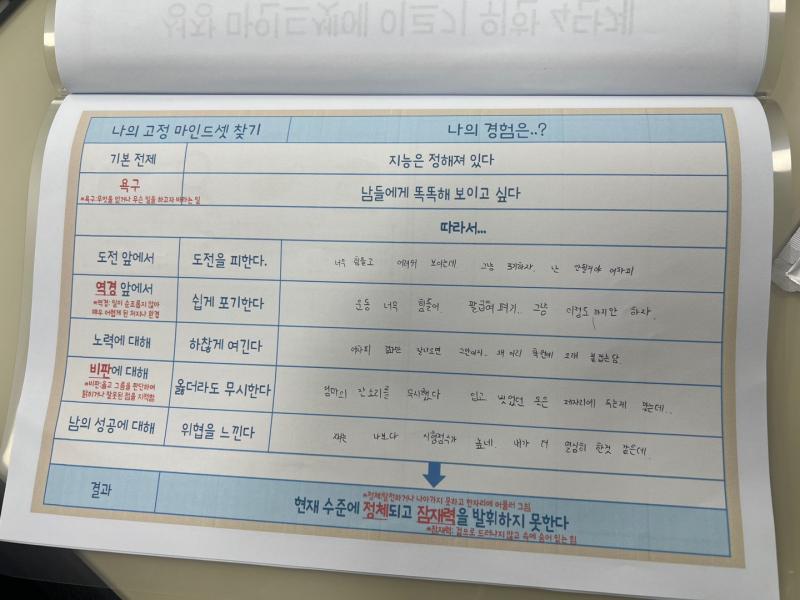 성장 마인드셋에 이르기 위한 4단계
나의 고정 마인드셋 찾기 나의 경험은..?
기본 전제 지능은 정해져 있다
욕구 남들에게 똑똑해 보이고 싶다
*욕구:무엇을 얻거나 무슨 일을 하고자 바라는 일
따라서...
도전 앞에서 도전을 피한다. 너무 힘들고 어려워 보이는데 그냥 포기하자. 난 안될거야 어차피
역경 앞에서 쉽게 포기한다 운동 너무 힘들어. 팔굽혀펴기.. 그냥 이정도 까지만 하자.
*역경: 일이 순조롭지 않아
매우 어렵게 된 처지나 환경
노력에 대해 하찮게 여긴다 어차피 결과만 잘나오면 그만이지.. 왜 이리 오래 붙잡는담
비판에 대해 옳더라도 무시한다 엄마의 잔소리를 무시했다 입고 벗었던 옷은 제자리에 두는게 맞는데..
*비판:옳고 그름을 판단하여
밝히거나 잘못된 점을 지적함
남의 성공에 대해 위협을 느낀다 쟤는 나보다 시험점수가 높네. 내가 더 열심히 한것 같은데.
*정체:발전하거나 나아가지 못하고 한자리에 머물러 그침
결과 현재 수준에 정체되고 잠재력을 발휘하지 못한다
*잠재력: 겉으로 드러나지 않고 속에 숨어 있는 힘